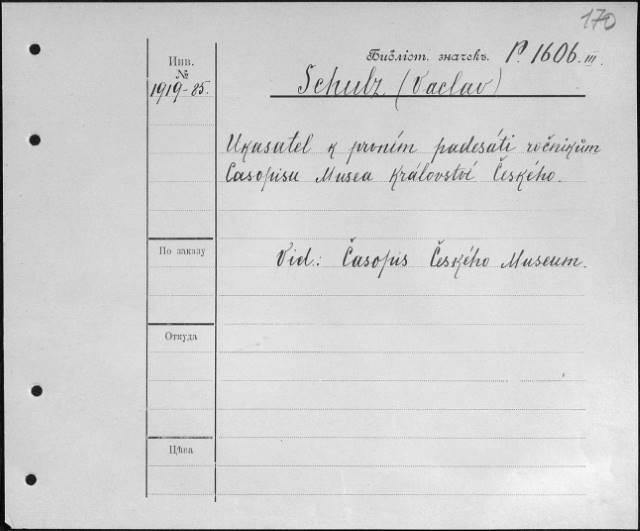 170
Библіот. значекъ. P. 1606. III.
Инв.
№
1919-85.
Schulz (Vaclav)
Ukasatel k proním padesáti ročnikům
Časopisu Musea Království Českého.
По заказу
Vid.: Časopis Českého Museum.
Откуда
Цѣна